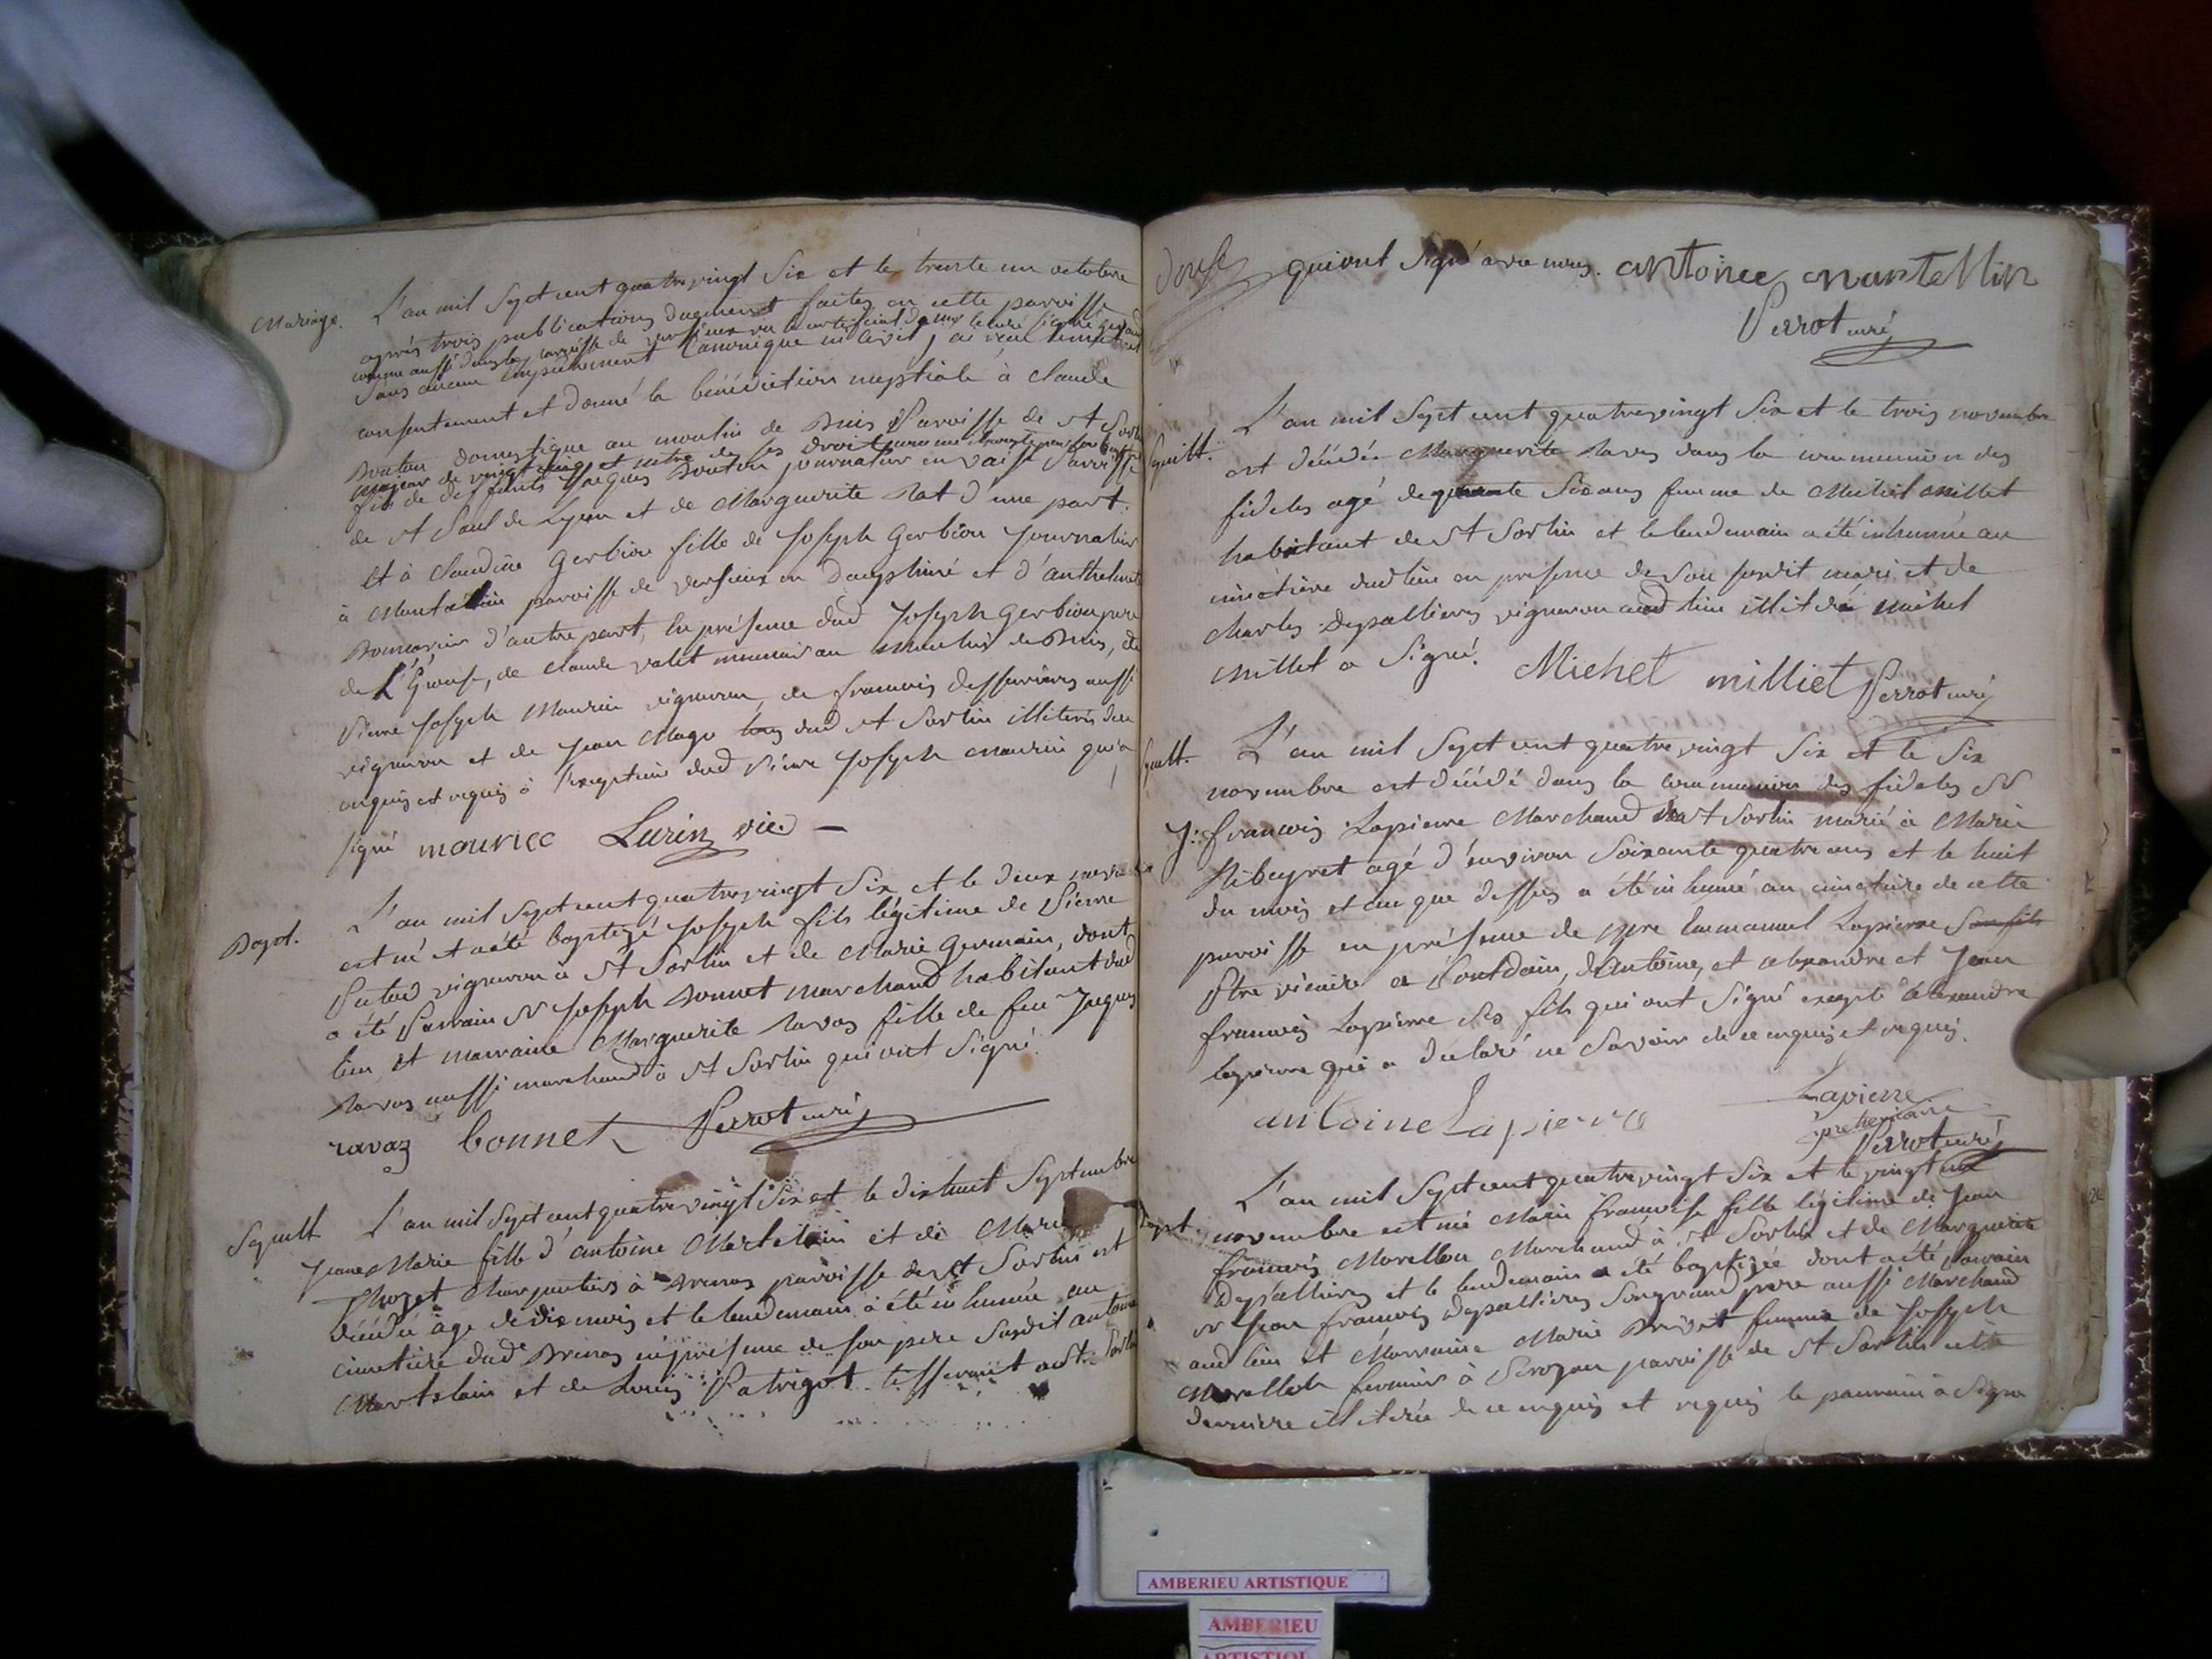 Mariage. L'an mil Sept cent quatre vingt Six et le trente un octobre
après trois publications duement faites en cette paroisse
comme aussi dans la paroisse de
Sans aucun empêchement Canonique ni Civil, j'ai reçu
consentement et donné la bénédiction nuptiale à Claude
Bouton domestique au moulin de Buis Paroisse de St Sorlin
majeur de vingt cinq et
fils de deffunts Jacques Bouton journalier en Vaise Paroisse
de St Paul de Lyon et de Marguerite Rat d'une part.
Et à Claudine Gerbion fille de Joseph Gerbion journalier
à paroisse de Versieux en Dauphiné et d'anthelmette
d'autre part, En présence dud Joseph Gerbion pere
de L'Epouse, de Claude valet meunier au moulin de Buis, de
Pierre Joseph Maurice vigneron, de françois aussi
vigneron et de Jean Mage tous dud St Sorlin illiterés de ce
enquis et requis à l'exeption dud Pierre Joseph maurice qui a
signé mourice Lurin vic.
Bapt. L'an mil Sept cent quatre vingt Six et le deux
est né et a été baptizé Joseph fils légitime de Pierre
vigneron à St Sorlin et de Marie Germain, dont
a été Parrain Sr Joseph Bonnet marchand habitant dud
lieu et marraine Marguerite Ravas fille de feu Jaques
Ravas aussi marchand à St Sorlin qui ont Signé.
ravaz bonnet Perrot curé
Sepult. L'an mil Sept cent quatre vingt Six et le dix huit Septembre
Jeane Marie fille d'antoine Martelain et de Marie
charpentier à paroisse de St Sorlin est
décédée âgé de dix mois et le lendemain à été inhumée au
cimetiere dud en présence de son pere Susdit antoine
Martelain et de Louis Patrigot tisserant à St. Sorlin
qui ont signé avec nous. antoinee martellin
Perrot curé
Sepult. L'an mil Sept cent quatre vingt Six et le trois novembre
est décédée Marguerite Ravas dans la communion des
fideles agé de Six ans femme de Michel millet
habitant de St Sorlin et le lendemain a été inhumée au
cimetière dud lieu en presence de Son susdit mari et de
Charles Depallieres vigneron aud lieu illitéré michel
millet a Signé. Michel milliet Perrot curé
Sepult. L'an mil Sept cent quatre vingt Six et le Six
novembre est décédé dans la communion des fideles Sr
J: françois Lapierre Marchand de St Sorlin marié à Marie
Ribeyret agé d'environ Soixante quatre ans et le huit
du mois et an que dessus a été inhumé au cimetiere de cette
paroisse en présence de Emmanuel Lapierre son fils
Ptre vicaire à Pontdain, d'Antoine, et alexandre et Jean
françois Lapierre Ses fils qui ont Signé exepté alexandre
lapierre qui a declaré ne Savoir de ce enquis et requis.
antoine Lapierre Lapierre
pretre vicaire
Perrot curé
Bapt. L'an mil Sept cent quatre vingt Six et le vingt
novembre est né Marie françoise fille légitime de Jean
françois Morellon Marchand à St Sorlin et de Marguerite
Depallieres et le lendemain a été baptizée dont a été parrain
Sr Jean françois Depallieres Son grand pere aussi Marchand
aud lieu et Marraine Marie femme de Joseph
Morellon fermier à paroisse de St Sorlin cette
derniere illitérée de ce enquis et requis le parrain à Signé
AMBERIEU ARTISTIQUE
AMBERIEU
ARTISTIQU